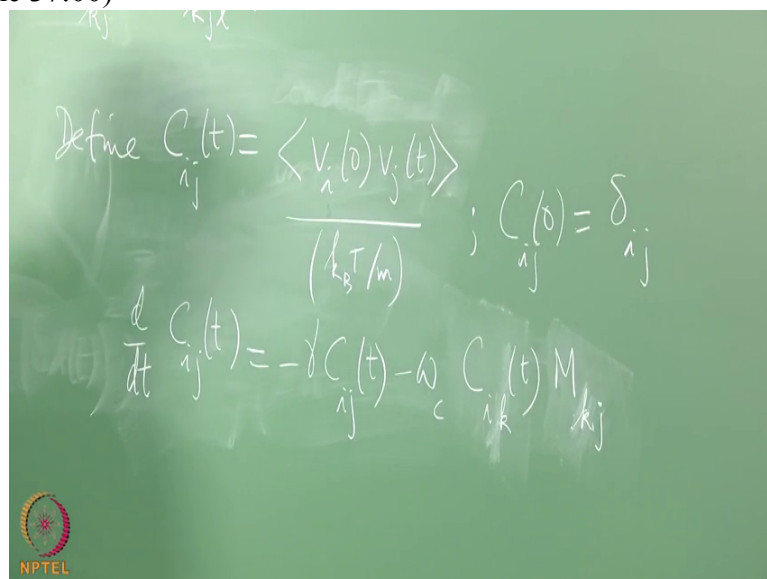 kj kjl
Define C_ij(t) = <V_i(0) V_j(t)> / (k_B T/m) ; C_ij(0) = δ_ij
d/dt C_ij(t) = -γ C_ij(t) - ω_c C_ik(t) M_kj
NPTEL